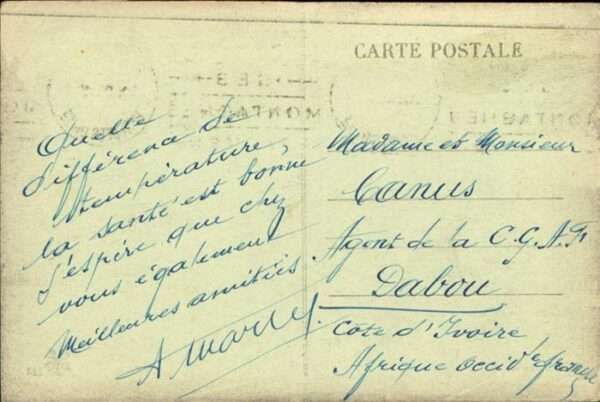 CARTE POSTALE
Quelle
différence de
température,
la santé est bonne
J'espère que chez
vous également
Meilleures amitiés
Madame et Monsieur
Canus
Agent de la C.G.A.F.
Dabou
Cote d'Ivoire
Afrique Occid^le française